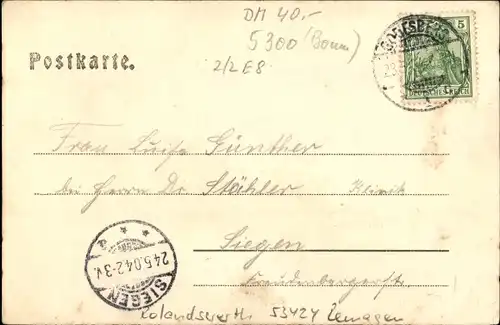 DM 40.-
5300 (Bonn)
2/2 E8
Postkarte.
GODESBERG
5
DEUTSCHES REICH
Frau Luise Günther
bei Herrn Dr. Stähler Klinik
Siegen
Freudenbergerstr.
SIEGEN
24.5.04.2-3N.
Rolandswerth. 53424 Remagen